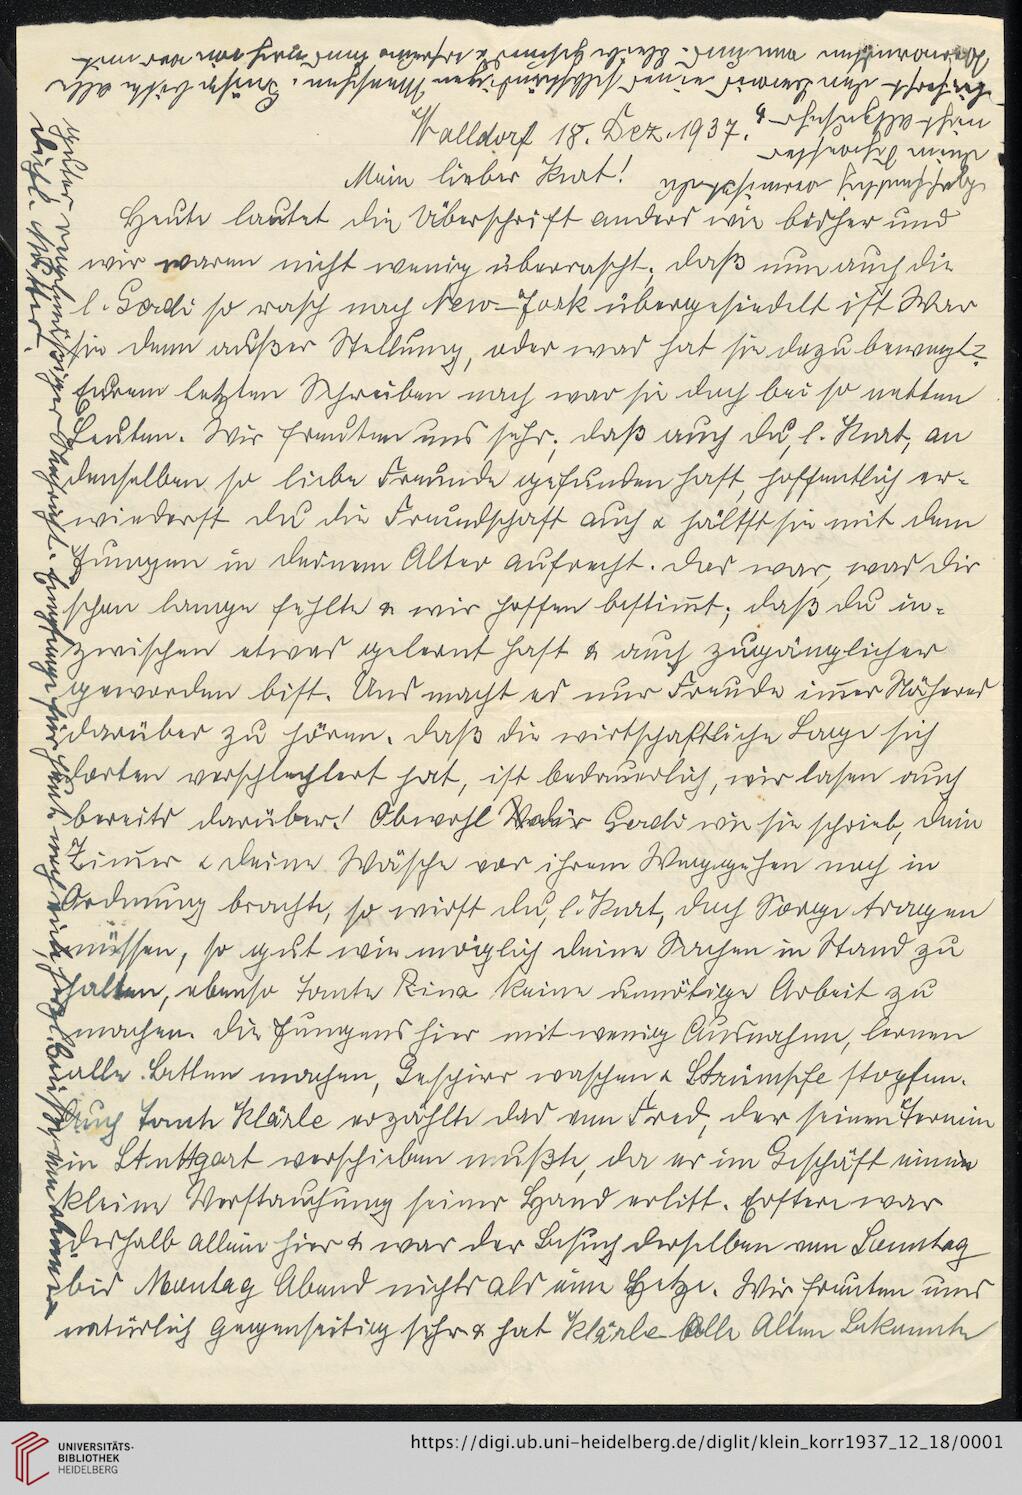 Walldorf 18. Dez. 1937.
Mein lieber Kurt!
Heute lautet die Überschrift anders wie bisher und
wir waren nicht wenig überrascht, daß nun auch die
l. Gerdi so rasch nach New-York übergesiedelt ist War
sie denn außer Stellung, oder was hat sie dazu bewegt?
Eurem letzten Schreiben nach war sie doch bei so netten
Leuten. Wir freuten uns sehr, daß auch du, l. Kurt, an
denselben so liebe Freunde gefunden hast, hoffentlich er-
wiederst du die Freundschaft auch & hältst sie mit dem
Jungen in deinem Alter aufrecht. Das war, was dir
schon lange fehlte & wir hoffen bestimt, daß du in-
zwischen etwas gelernt hast & auch zugänglicher
geworden bist. Uns macht es nur Freude imer Näheres
darüber zu hören. Daß die wirtschaftliche Lage sich
dorten verschlechtert hat, ist bedauerlich, wir lasen auch
bereits darüber! Obwohl Gerdi wie sie schrieb, dein
Zimer & deine Wäsche vor ihrem Weggehen noch in
Ordnung brachte, so wirst du, l. Kurt, doch Sorge tragen
müssen, so gut wie möglich deine Sachen in Stand zu
halten, ebenso Tante Rina keine unnötige Arbeit zu
machen. Die Jungens hier mit wenig Ausnahmen, lernen
alle Betten machen, Geschirr waschen & Strümpfe stopfen.
Auch Tante Klärle erzählte das von Fred, der seinen Termin
in Stuttgart verschieben mußte, da er im Geschäft eine
kleine Verstauchung seiner Hand erlitt. Erstere war
deshalb allein hier & war der Besuch derselben von Sonntag
bis Montag Abend nichts als eine Hetze. Wir freuten uns
natürlich gegenseitig sehr & hat Klärle alle Alten Bekannte
UNIVERSITÄTS-
BIBLIOTHEK
HEIDELBERG
https://digi.ub.uni-heidelberg.de/diglit/klein_korr1937_12_18/0001